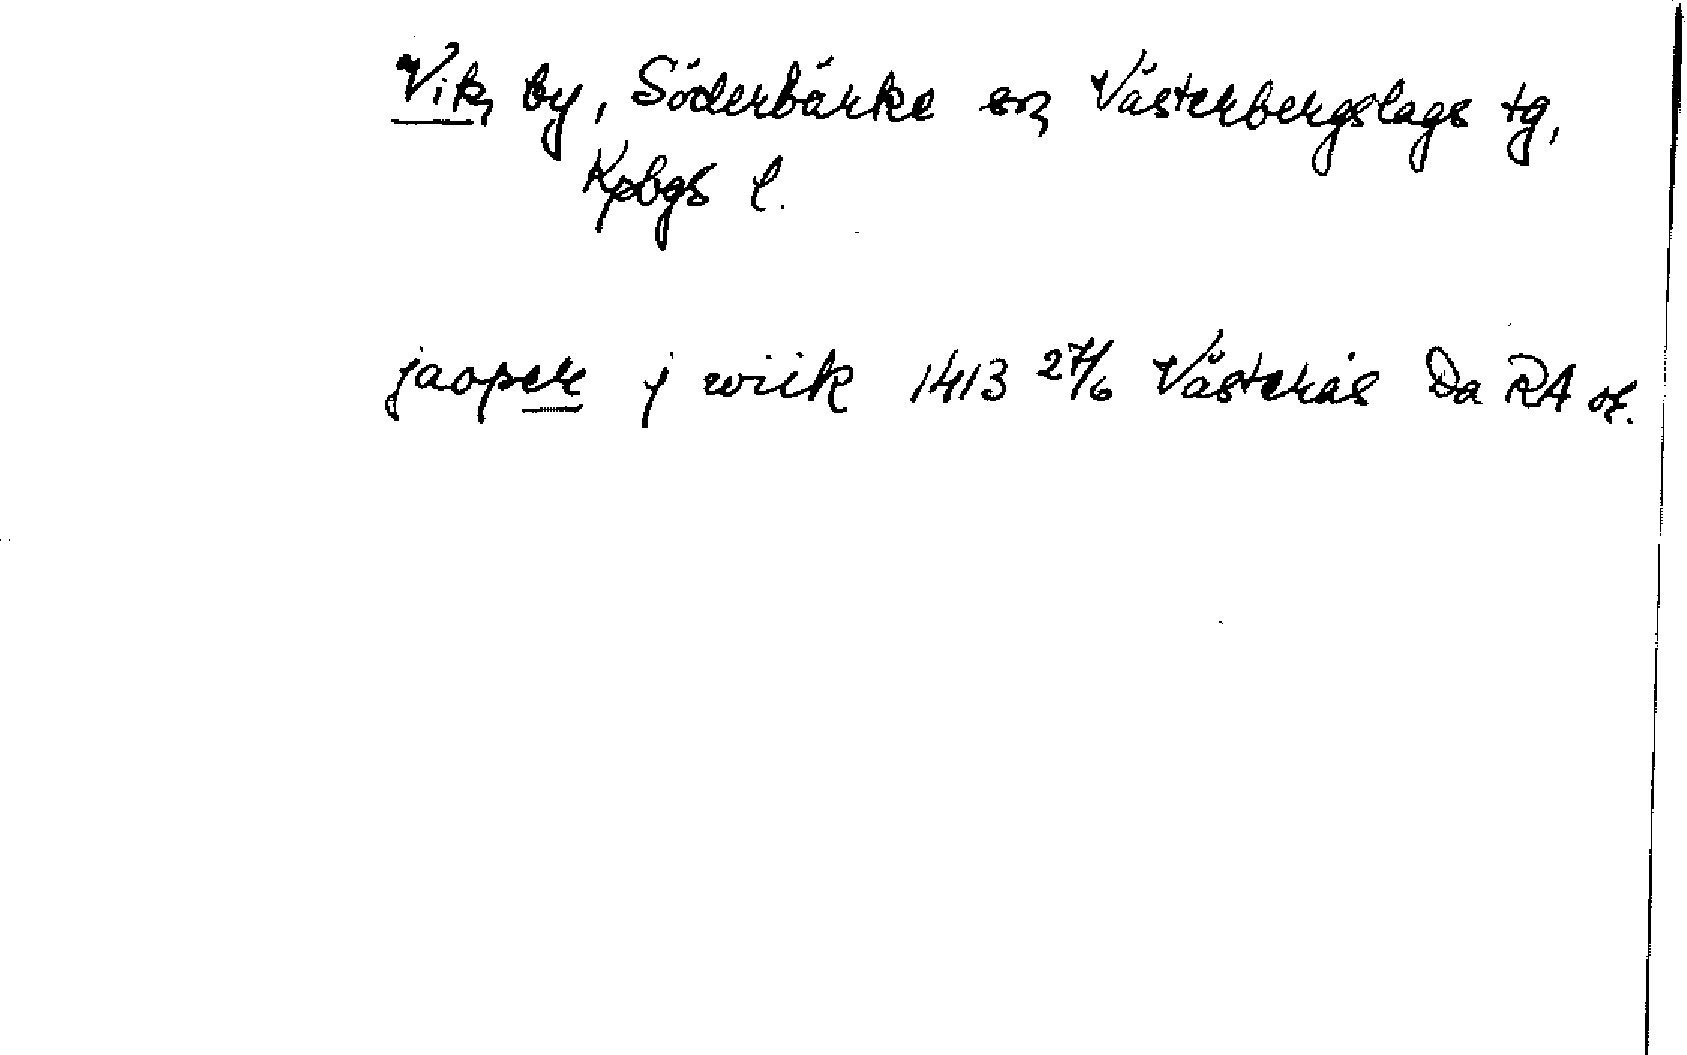 Vik, by, Söderbärke sn, Västerbergslags tg,
Kpbgs l.
jaoper j wiik 1413 27/6 Västerås Da RA or.